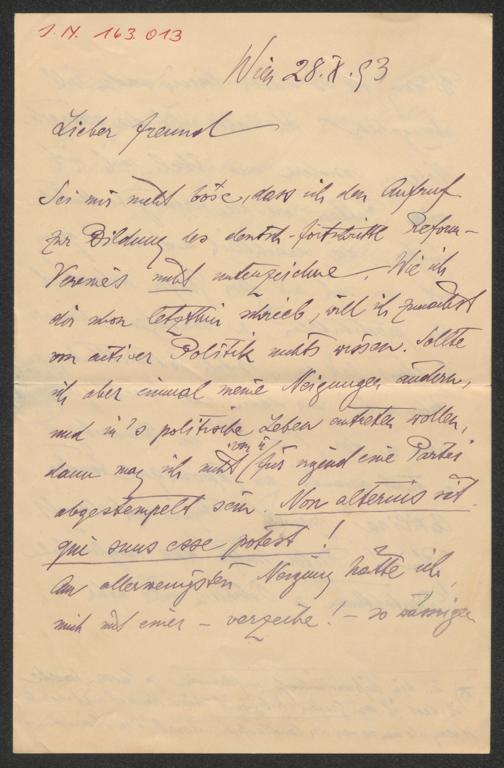 I.N. 163.013
Wien 28.X.93
Lieber Freund
Sei mir nicht böse, dass ich den Aufruf
zur Bildung des deutsch-fortschrittl Reform-
Vereines nicht unterzeichne. Wie ich
dir schon letzthin schrieb, will ich zunächst
von activer Politik nichts wissen. Sollte
ich aber einmal meine Neigungen ändern,
und in's politische Leben eintreten wollen,
dann mag ich nicht für irgend eine Partei
abgestempelt sein. Non alterius sit
qui suus esse potest!
Am allerwenigsten Neigung hätte ich,
mich mit einer – verzeihe! – so